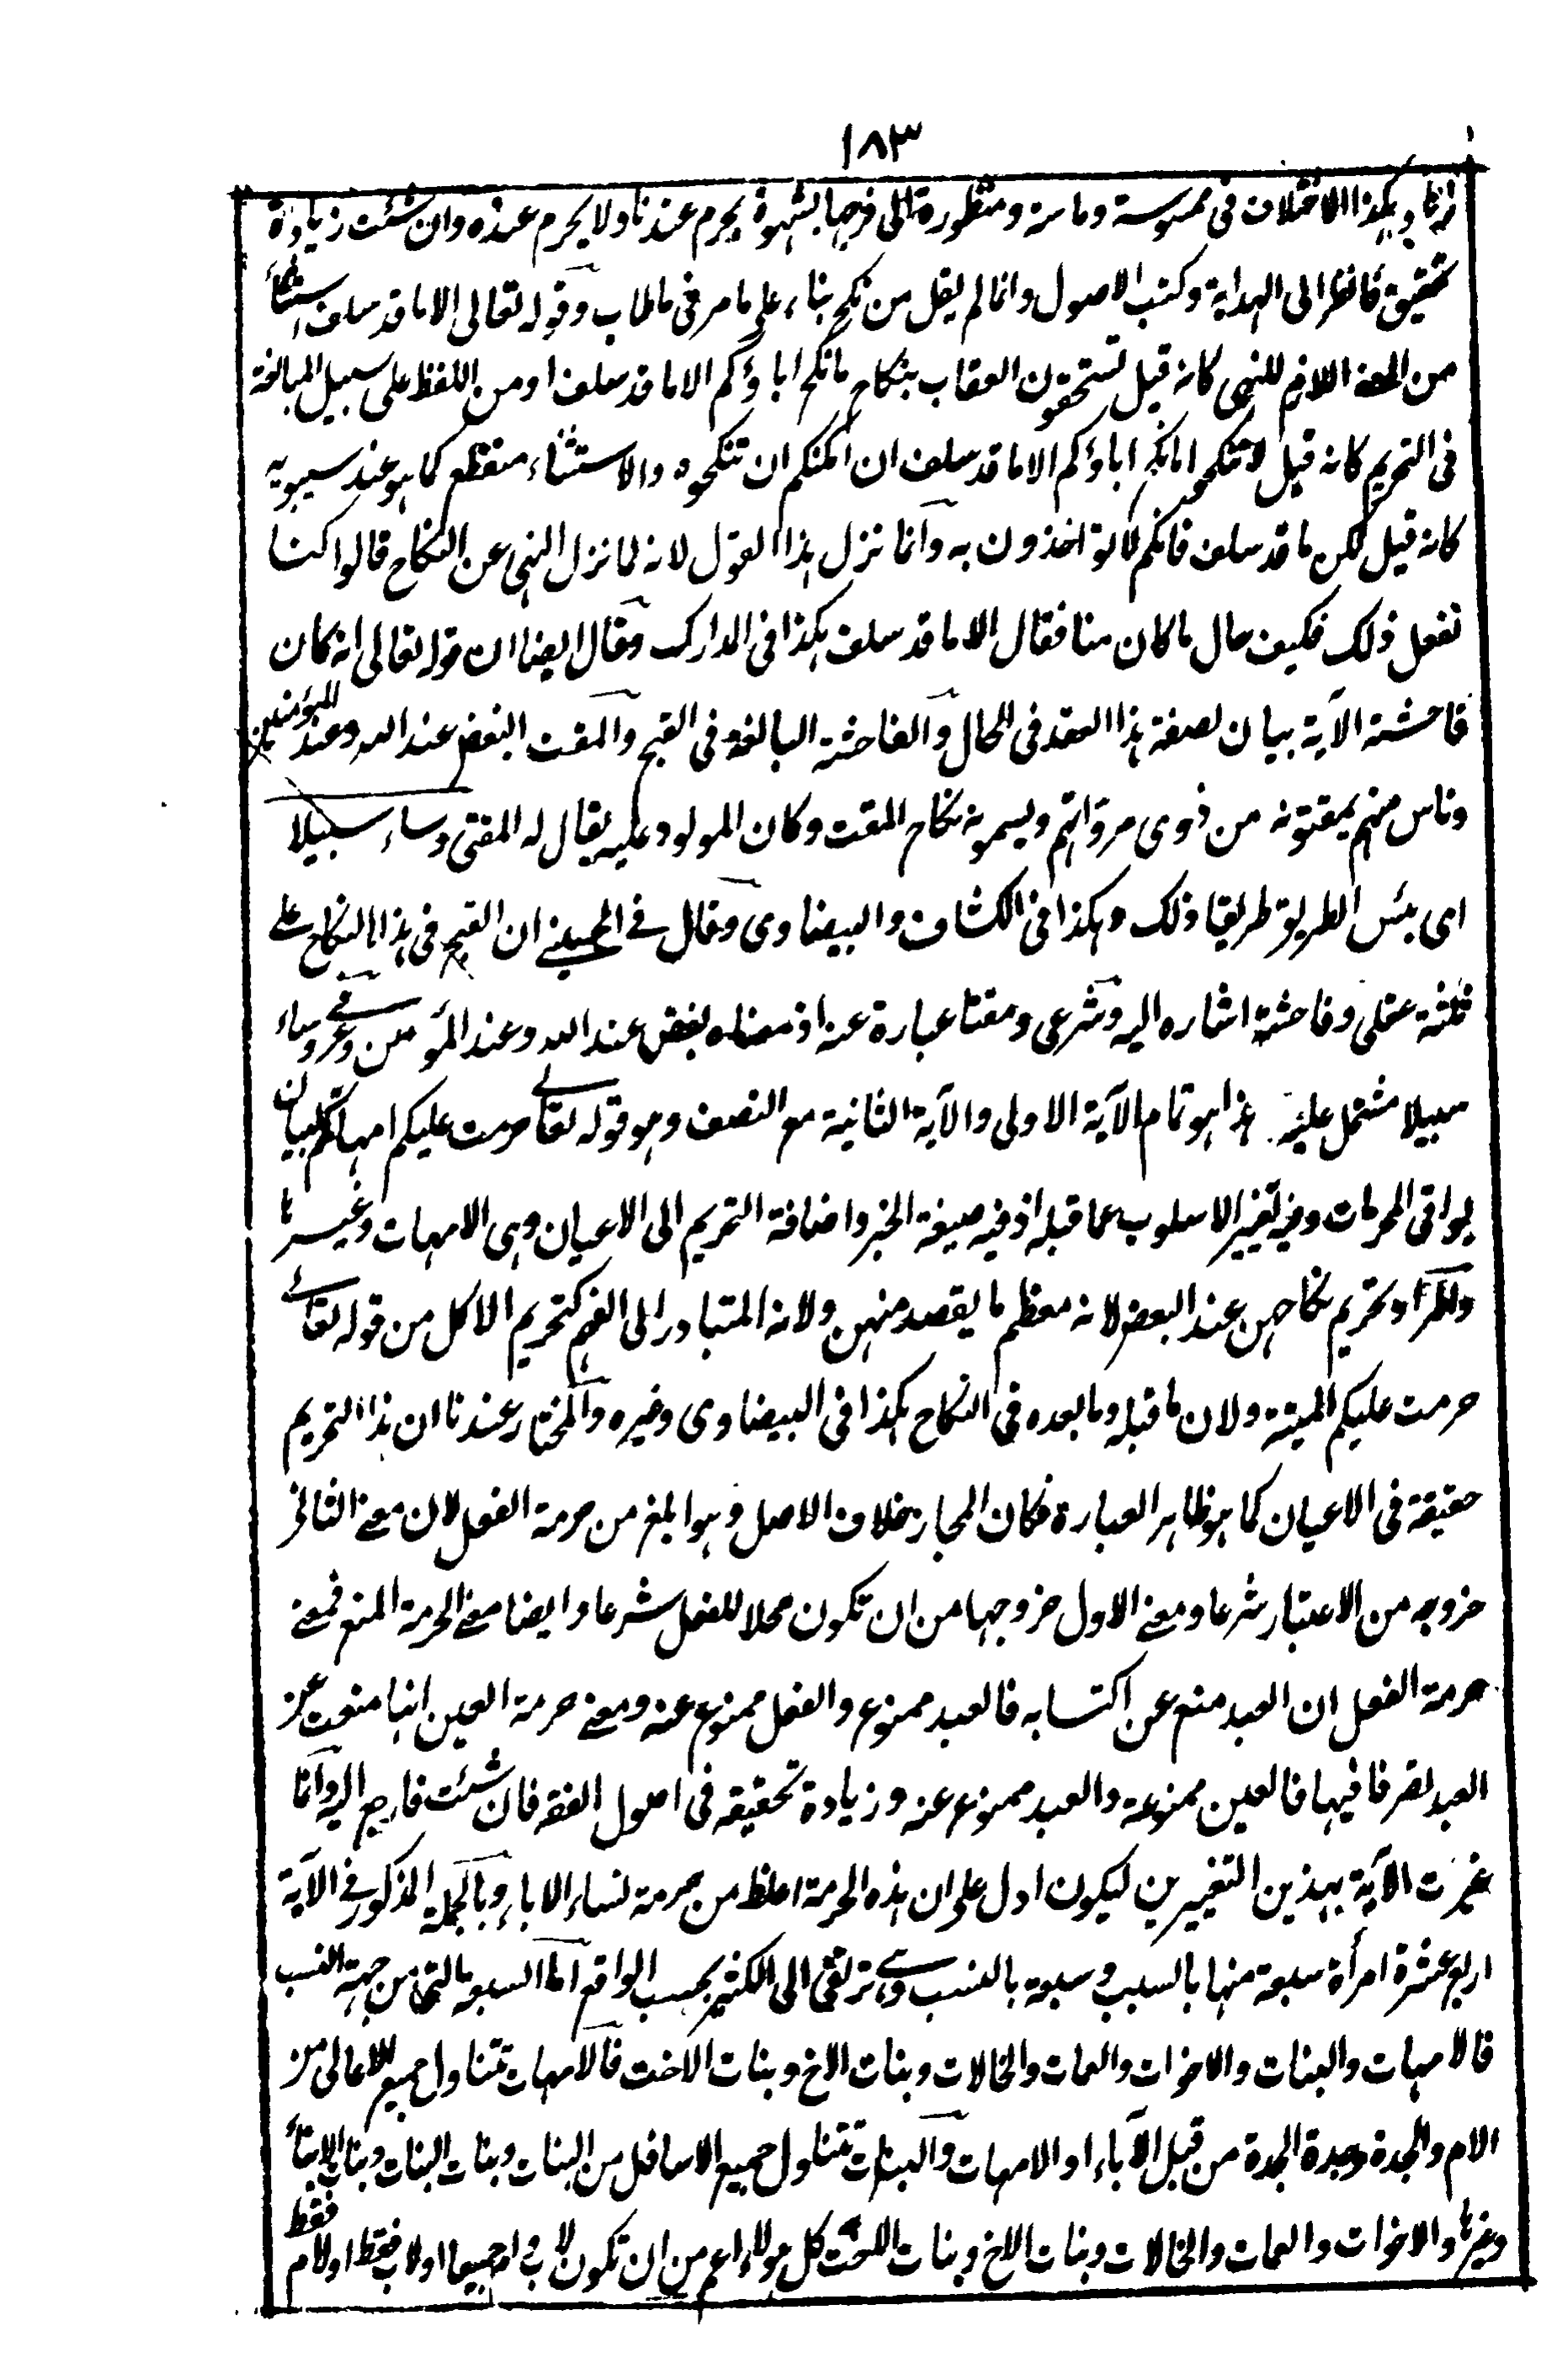 ١٨٣
وهكذا الاختلاف فى ممسوسة وماسة ومنظورة الى فرجها بشهوة يحرم عندنا ولا يحرم عنده وان شئت زيادة
تحقيق فانظر الى الهداية وكتب الاصول وانما لم يقل من نكح بناء على ما مر فى ما طاب وقوله تعالى الا ما قد سلف استثناء
من المعنى اللازم للنهى كانه قيل تستحقون العقاب بنكاح ما نكح اباؤكم الا ما قد سلف او من اللفظ على سبيل المبالغة
فى التحريم كانه قيل لا تنكحوا ما نكح اباؤكم الا ما قد سلف ان امكنكم ان تنكحوه والاستثناء منقطع كما هو عند سيبويه
كانه قيل لكن ما قد سلف فانكم لا تواخذون به وانما نزل هذا القول لانه لما نزل النهى عن النكاح قالوا كنا
نفعل ذلك فكيف حال ما كان منا فقال الا ما قد سلف هكذا فى المدارك وقال ايضا ان قوله تعالى انه كان
فاحشة الآية بيان لصفة هذا العقد فى الحال والفاحشة البالغة فى القبح والمقت البغض عند الله وعند المؤمنين
وناس منهم يمقتونه من ذوى مرواتهم ويسمونه نكاح المقت وكان المولود عليه يقال له المقتى وساء سبيلا
اى بئس الطريق طريقا ذلك وهكذا فى الكشاف والبيضاوى وقال فى الحسينى ان القبح فى هذا النكاح على
ثلثة عقلى وفاحشة اشاره اليه وشرعى ومقتا عبارة عنه اذ معناه بغض عند الله وعند المؤمن وعرفى وساء
سبيلا مشتمل عليه هذا هو تمام الآية الاولى والآية الثانية مع النصف وهو قوله تعالى حرمت عليكم امهاتكم لبيان
بواقى المحرمات وفيه تغيير الاسلوب عما قبله اذ فيه صيغة الخبر واضافة التحريم الى الاعيان وهى الامهات وغيرها
والمراد تحريم نكاحهن عند البعض لانه معظم ما يقصد منهن ولانه المتبادر الى الفهم كتحريم الاكل من قوله تعالى
حرمت عليكم الميتة ولان ما قبله وما بعده فى النكاح هكذا فى البيضاوى وغيره والمختار عندنا ان هذا التحريم
حقيقة فى الاعيان كما هو ظاهر العبارة فكان المجاز بخلاف الاصل وهو ابلغ من حرمة الفعل لان معنى الثانى
خروجه من الاعتبار شرعا ومعنى الاول خروجها من ان تكون محلا للفعل شرعا وايضا معنى الحرمة المنع فمعنى
حرمة الفعل ان العبد منع عن اكتسابه فالعبد ممنوع والفعل ممنوع عنه ومعنى حرمة العين انها منعت عن
العبد تصرفا فيها فالعين ممنوعة والعبد ممنوع عنه وزيادة تحقيقه فى اصول الفقه فان شئت فارجع اليه وانما
غيرت الآية بهذين التغييرين ليكون ادل على ان هذه الحرمة اغلظ من حرمة نساء الاباء وبالجملة المذكور فى الآية
اربع عشرة امرأة سبعة منها بالسبب وسبعة بالنسب وهى ترتقى الى الكثير بحسب الواقع اما السبعة التى من جهة النسب
فالامهات والبنات والاخوات والعمات والخالات وبنات الاخ وبنات الاخت فالامهات تتناول جميع الاعالى من
الام والجدة وجدة الجدة من قبل الآباء او الامهات والبنات تتناول جميع الاسافل من البنات وبنات البنات وبنات الابناء
وغيرها والاخوات والعمات والخالات وبنات الاخ وبنات الاخت كل هؤلاء اعم من ان تكون لاب وام جميعا او لاب فقط او لام فقط